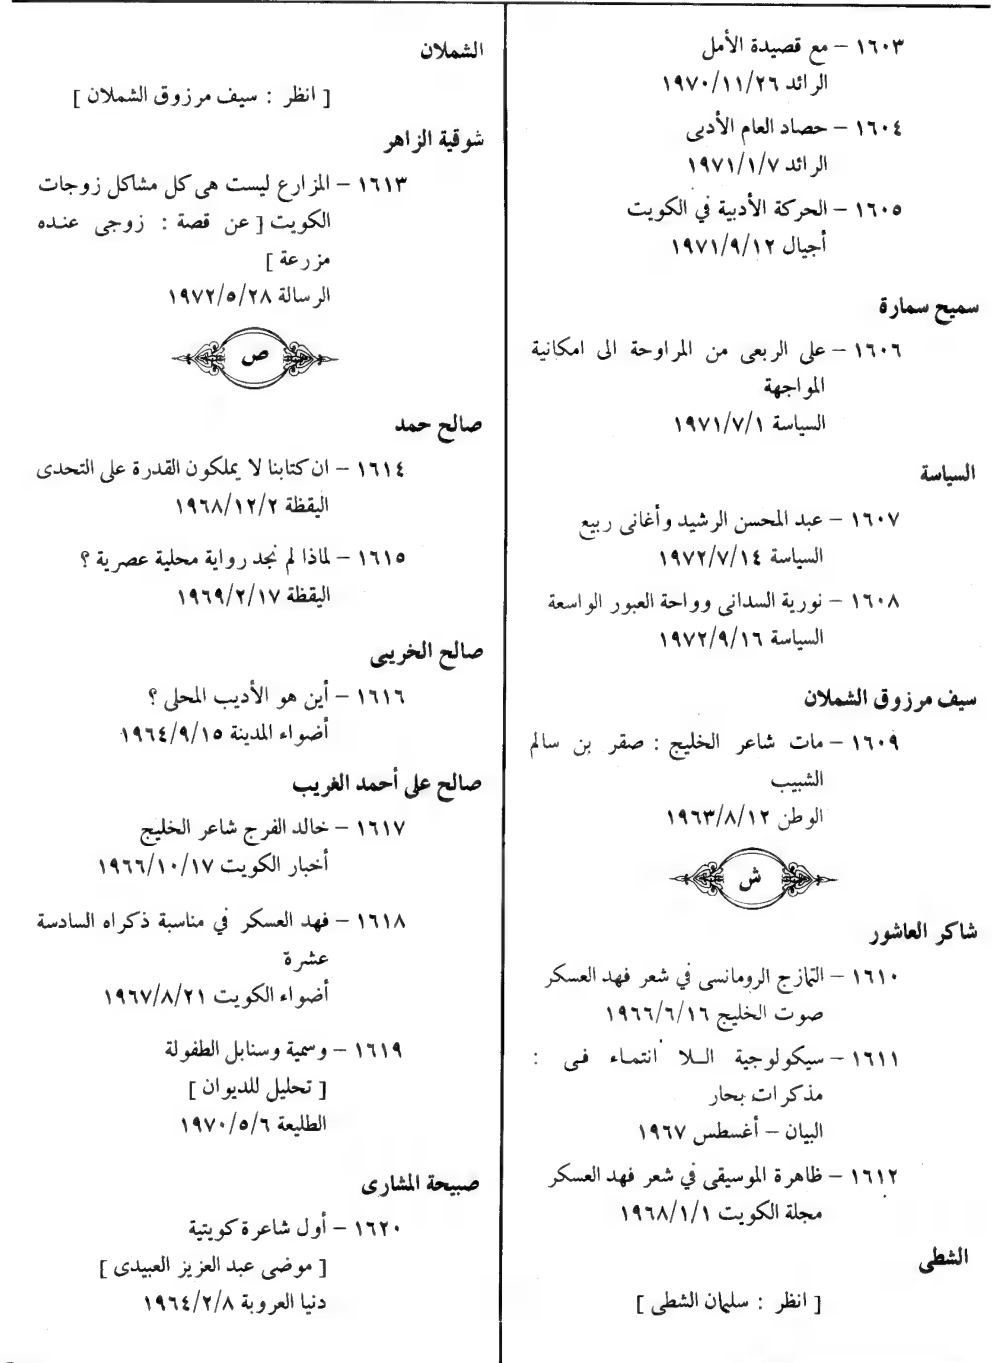 ١٦٠٣ – مع قصيدة الأمل
الرائد ١٩٧٠/١١/٢٦
١٦٠٤ – حصاد العام الأدبى
الرائد ١٩٧١/١/٧
١٦٠٥ – الحركة الأدبية في الكويت
أجيال ١٩٧١/٩/١٢
سميح سمارة
١٦٠٦ – على الربعى من المراوحة الى امكانية
المواجهة
السياسة ١٩٧١/٧/١
السياسة
١٦٠٧ – عبد المحسن الرشيد وأغانى ربيع
السياسة ١٩٧٢/٧/١٤
١٦٠٨ – نورية السدانى وواحة العبور الواسعة
السياسة ١٩٧٢/٩/١٦
سيف مرزوق الشملان
١٦٠٩ – مات شاعر الخليج : صقر بن سالم
الشبيب
الوطن ١٩٦٣/٨/١٢
ش
شاكر العاشور
١٦١٠ – التمازج الرومانسى في شعر فهد العسكر
صوت الخليج ١٩٦٦/٦/١٦
١٦١١ – سيكولوجية اللا انتماء فى :
مذكرات بحار
البيان – أغسطس ١٩٦٧
١٦١٢ – ظاهرة الموسيقى في شعر فهد العسكر
مجلة الكويت ١٩٦٨/١/١
الشطى
[ انظر : سليمان الشطى ]
الشملان
[ انظر : سيف مرزوق الشملان ]
شوقية الزاهر
١٦١٣ – المزارع ليست هى كل مشاكل زوجات
الكويت [ عن قصة : زوجى عنده
مزرعة ]
الرسالة ١٩٧٢/٥/٢٨
ص
صالح حمد
١٦١٤ – ان كتابنا لا يملكون القدرة على التحدى
اليقظة ١٩٦٨/١٢/٢
١٦١٥ – لماذا لم نجد رواية محلية عصرية ؟
اليقظة ١٩٦٩/٢/١٧
صالح الخريبى
١٦١٦ – أين هو الأديب المحلى ؟
أضواء المدينة ١٩٦٤/٩/١٥
صالح على أحمد الغريب
١٦١٧ – خالد الفرج شاعر الخليج
أخبار الكويت ١٩٦٦/١٠/١٧
١٦١٨ – فهد العسكر في مناسبة ذكراه السادسة
عشرة
أضواء الكويت ١٩٦٧/٨/٢١
١٦١٩ – وسمية وسنابل الطفولة
[ تحليل للديوان ]
الطليعة ١٩٧٠/٥/٦
صبيحة المشارى
١٦٢٠ – أول شاعرة كويتية
[ موضى عبد العزيز العبيدى ]
دنيا العروبة ١٩٦٤/٢/٨